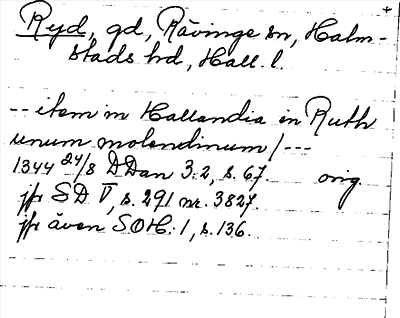 Ryd, gd, Rävinge sn, Halm-
stads hd, Hall. l.
-- item in Hallandia in Ruth
unum molendinum / ---
1344 24/8 DDan 3:2, s. 67. orig.
jfr SD V, s. 291 nr. 3827.
jfr även SOH: 1, s. 136.